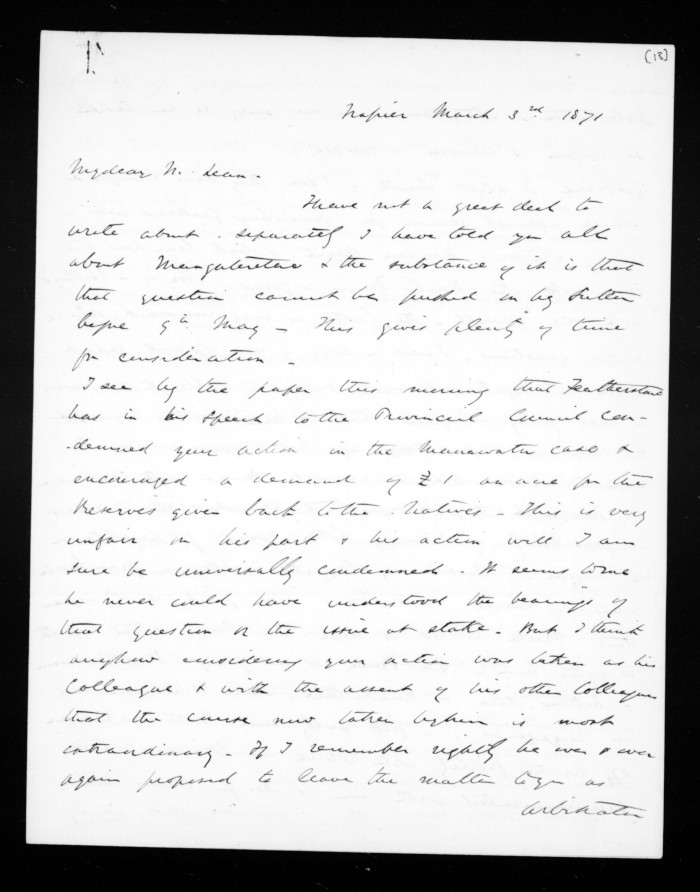 [13]
Napier March 3rd 1871
My dear McLean.
I have not a great deal to
write about. Separately I have told you all
about Mangateretere & the substance of it is that
that question cannot be pushed on by Sutton
before 9th May - This gives plenty of time
for consideration -
I see by the paper this morning that Featherstone
has in his speech to the Provincial Council con-
-demned your action in the Manawatu case &
encouraged a demand of £1 an acre for the
Reserves given back to the Natives - This is very
unfair on his part & his action will I am
sure be universally condemned. It seems to me
he never could have understood the bearings of
that question or the issue at stake. But I think
anyhow considering your action was taken as his
Colleague & with the assent of his other Colleagues
that the course now taken by him is most
extraordinary - If I remember rightly he over & over
again proposed to leave the matter to you as
arbitrator